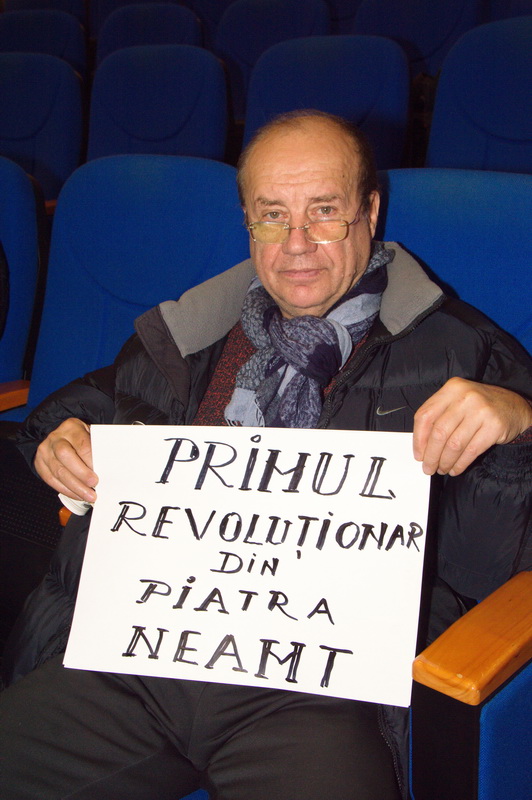 PRIMUL
REVOLUȚIONAR
DIN
PIATRA
NEAMT